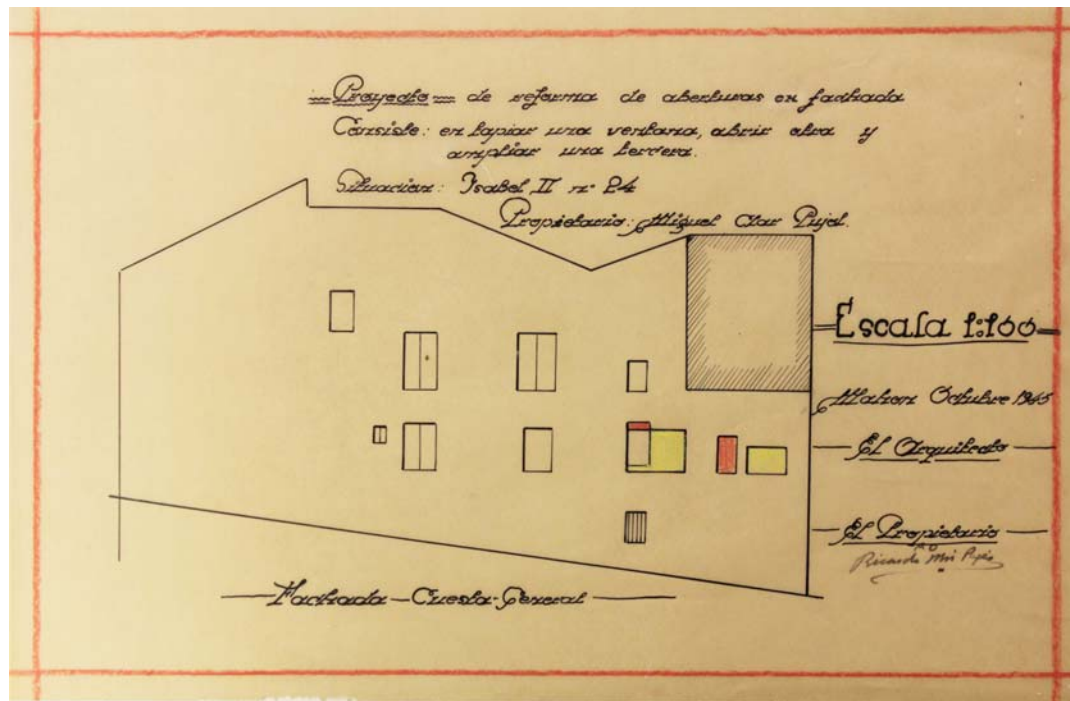 Proyecto de reforma de aberturas en fachada
Consiste: en tapiar una ventana, abrir otra y
ampliar una tercera.
Situacion: Isabel II nº 24
Propietario: Miguel Clar Pujol.
Escala 1:100
Mahon Octubre 1965
El Arquitecto
El Propietario
P.O.
Ricardo
Fachada Cuesta General